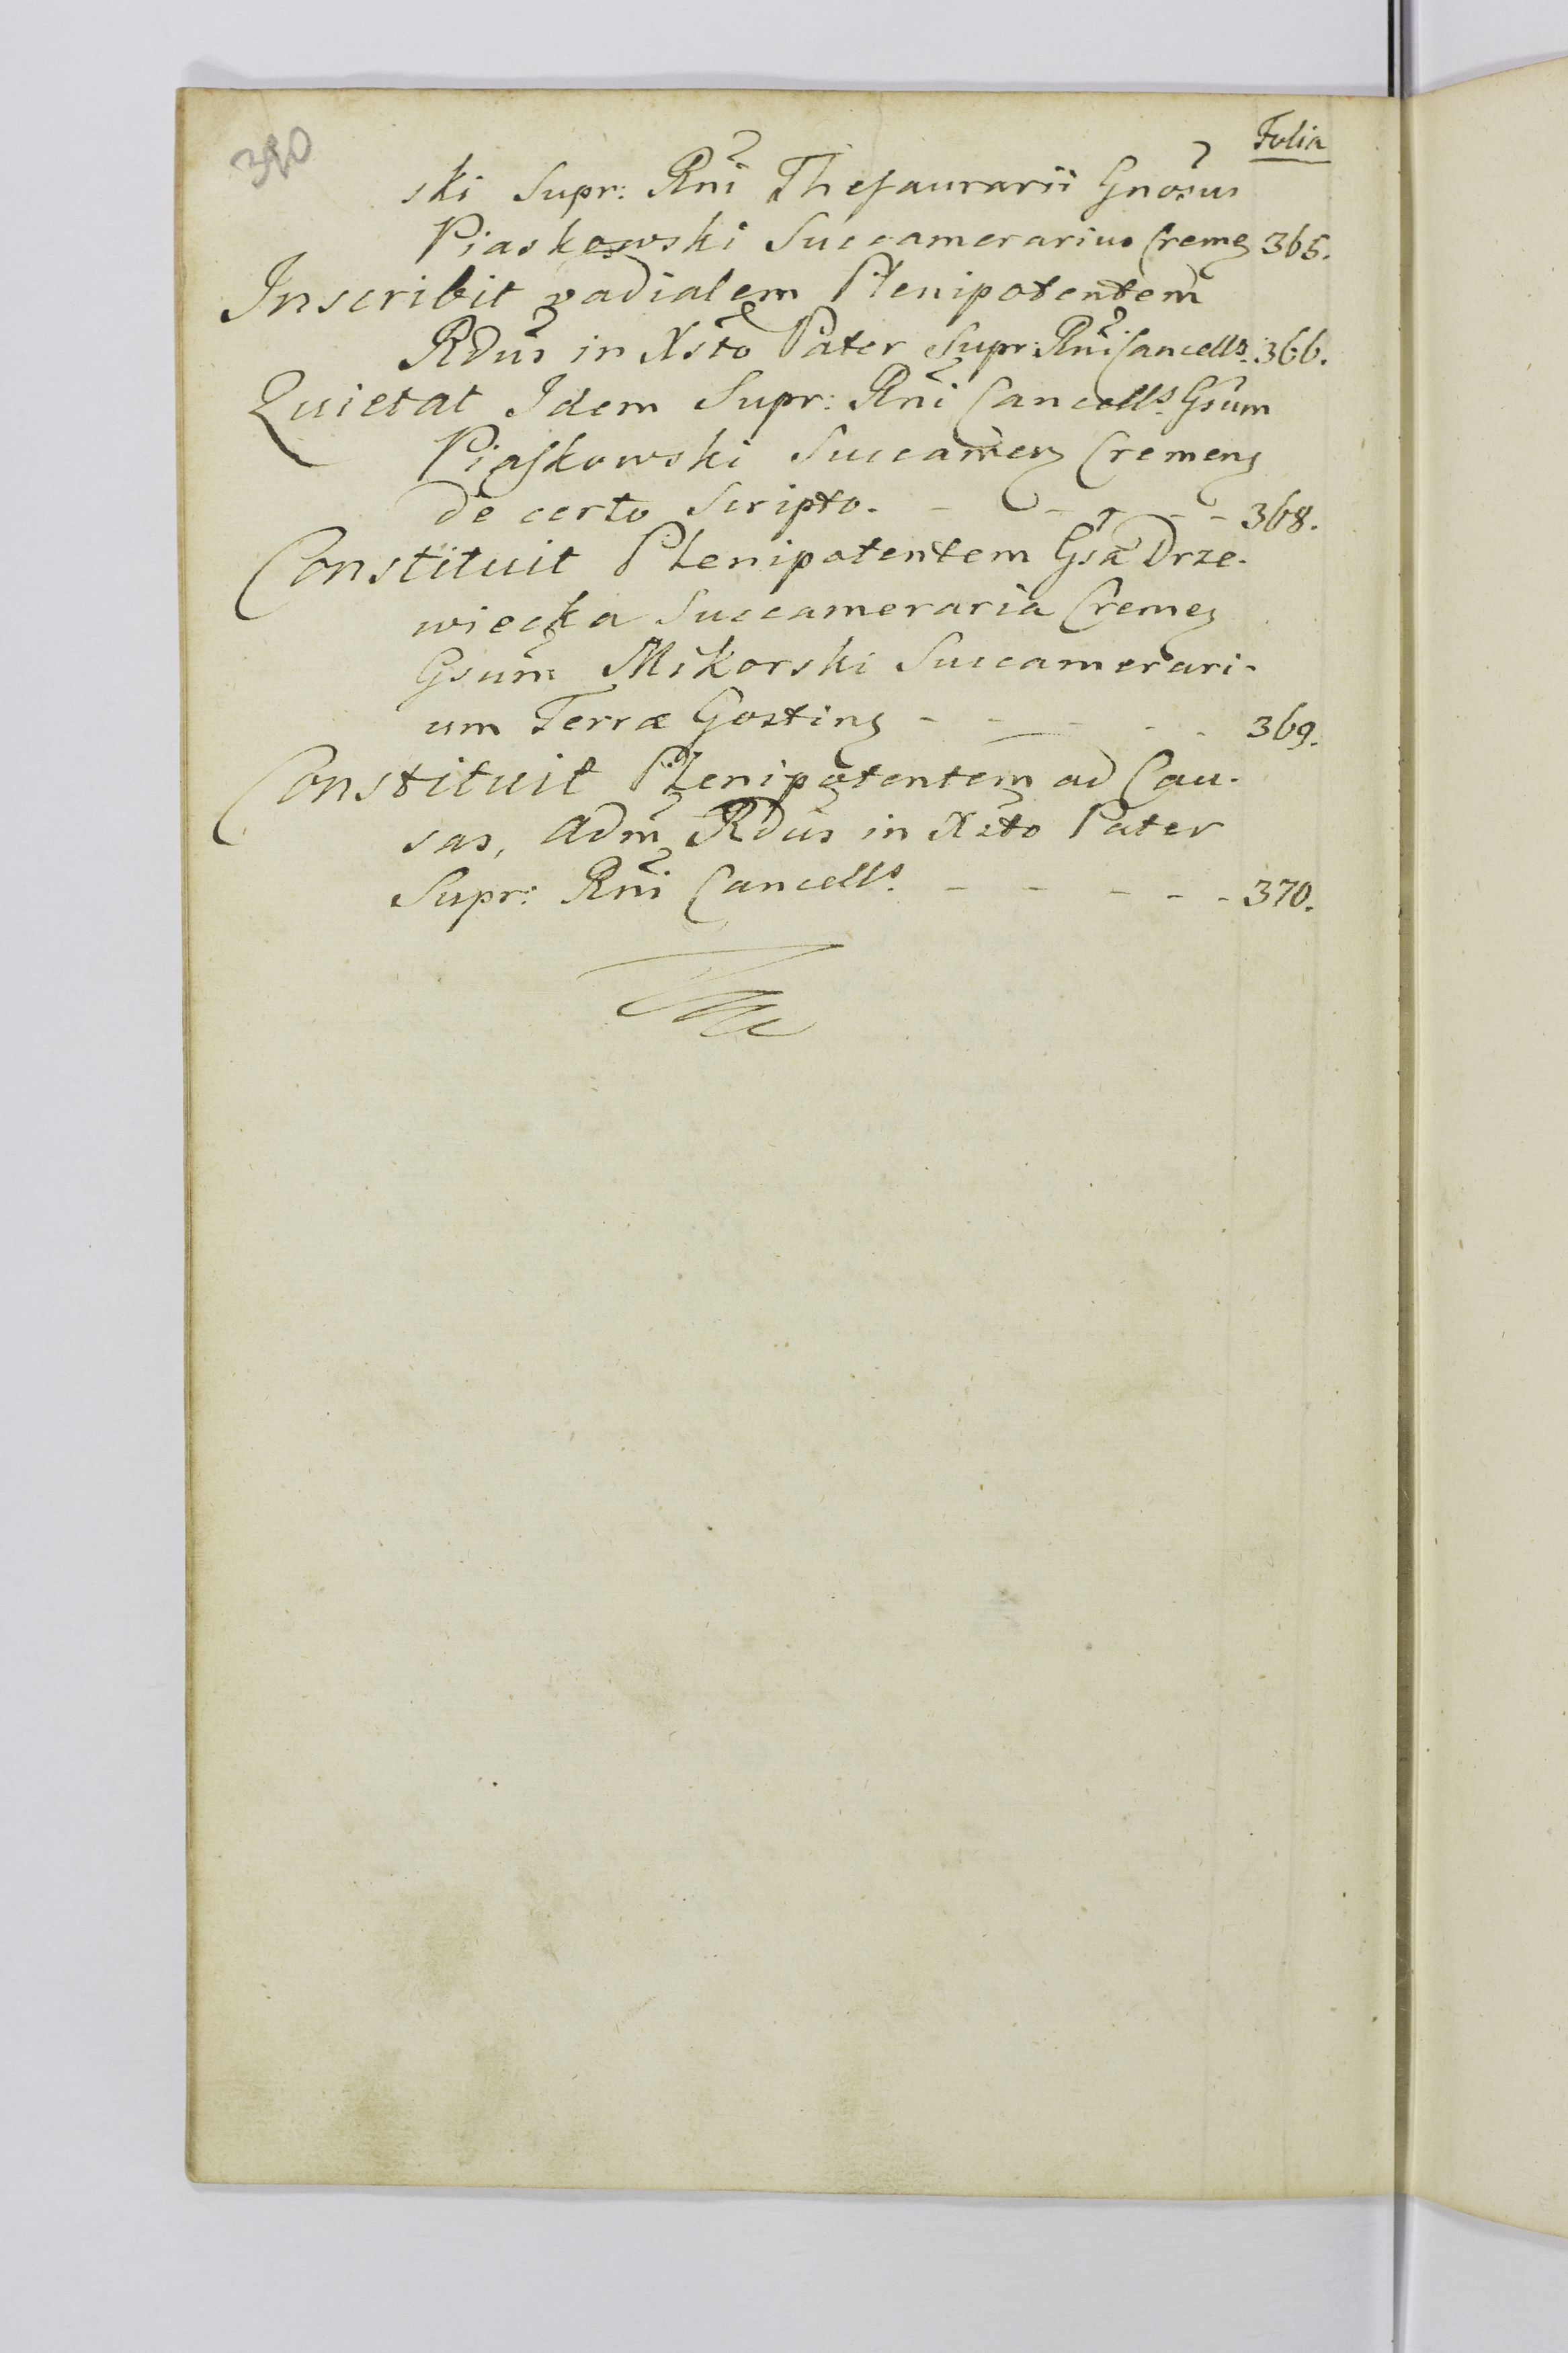 390
Folia
ski Supr: Rni Thesaurarii Gnosus
Piaskowski Succamerarius Cremen 365.
Inscribit vadialem Plenipotentem
Rdus in Xsto Pater Supr: Rni Cancells. 366.
Quietat Idem Supr: Rni Cancells. Gsum
Piaskowski Succamer Cremen
de certo Scripto. - - - - - 368.
Constituit Plenipotentem Gsa Drze-
wiecka Succameraria Cremen
Gsum Mikorski Succamerari-
um Terræ Gostinen - - - - - 369.
Constituit Plenipotentem ad Cau-
sas, Adm Rdus in Xsto Pater
Supr: Rni Cancells. - - - - - 370.